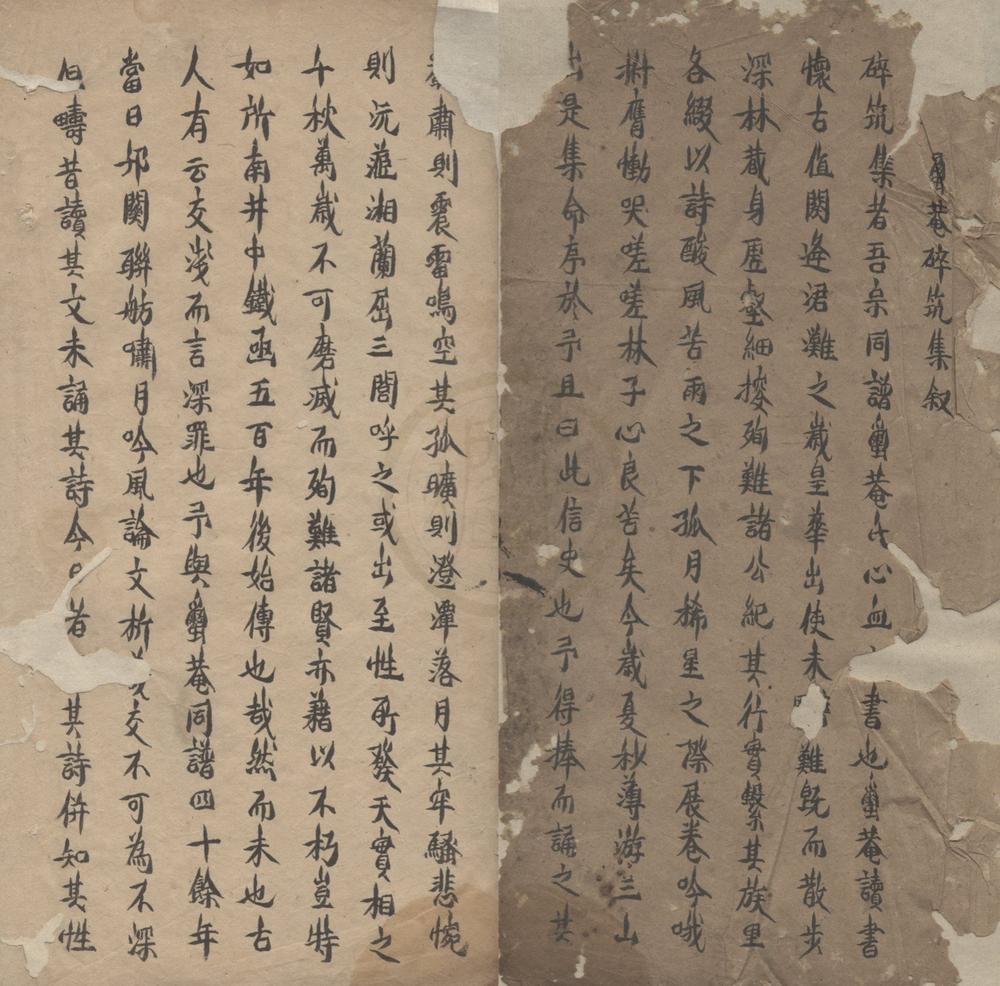 蜑菴碎筑集叙
碎筑集者吾宗同譜蜑菴氏心血書也蜑菴讀書
懷古值閼逢涒灘之歲皇華出使未難旣而散步
深林藏身巖壑細搜殉難諸公紀其行實繫其族里
各綴以詩酸風苦雨之下孤月稀星之際展卷吟哦
擗膺慟哭嗟嗟林子心良苦矣今歲夏秒薄游三山
出是集命序於予且曰此信史也予得捧而誦之其
肅則震雷鳴空其孤曠則澄潭落月其牢騷悲惋
則沅蘺湘蘭屈三閭呼之或出至性所發天實相之
千秋萬歲不可磨滅而殉難諸賢亦藉以不朽豈特
如所南井中鐵函五百年後始傳也哉然而未也古
人有云交淺而言深罪也予與蜑菴同譜四十餘年
當日邗關聯舫嘯月吟風論文析交不可為不深
疇昔讀其文未誦其詩今者其詩併知其性